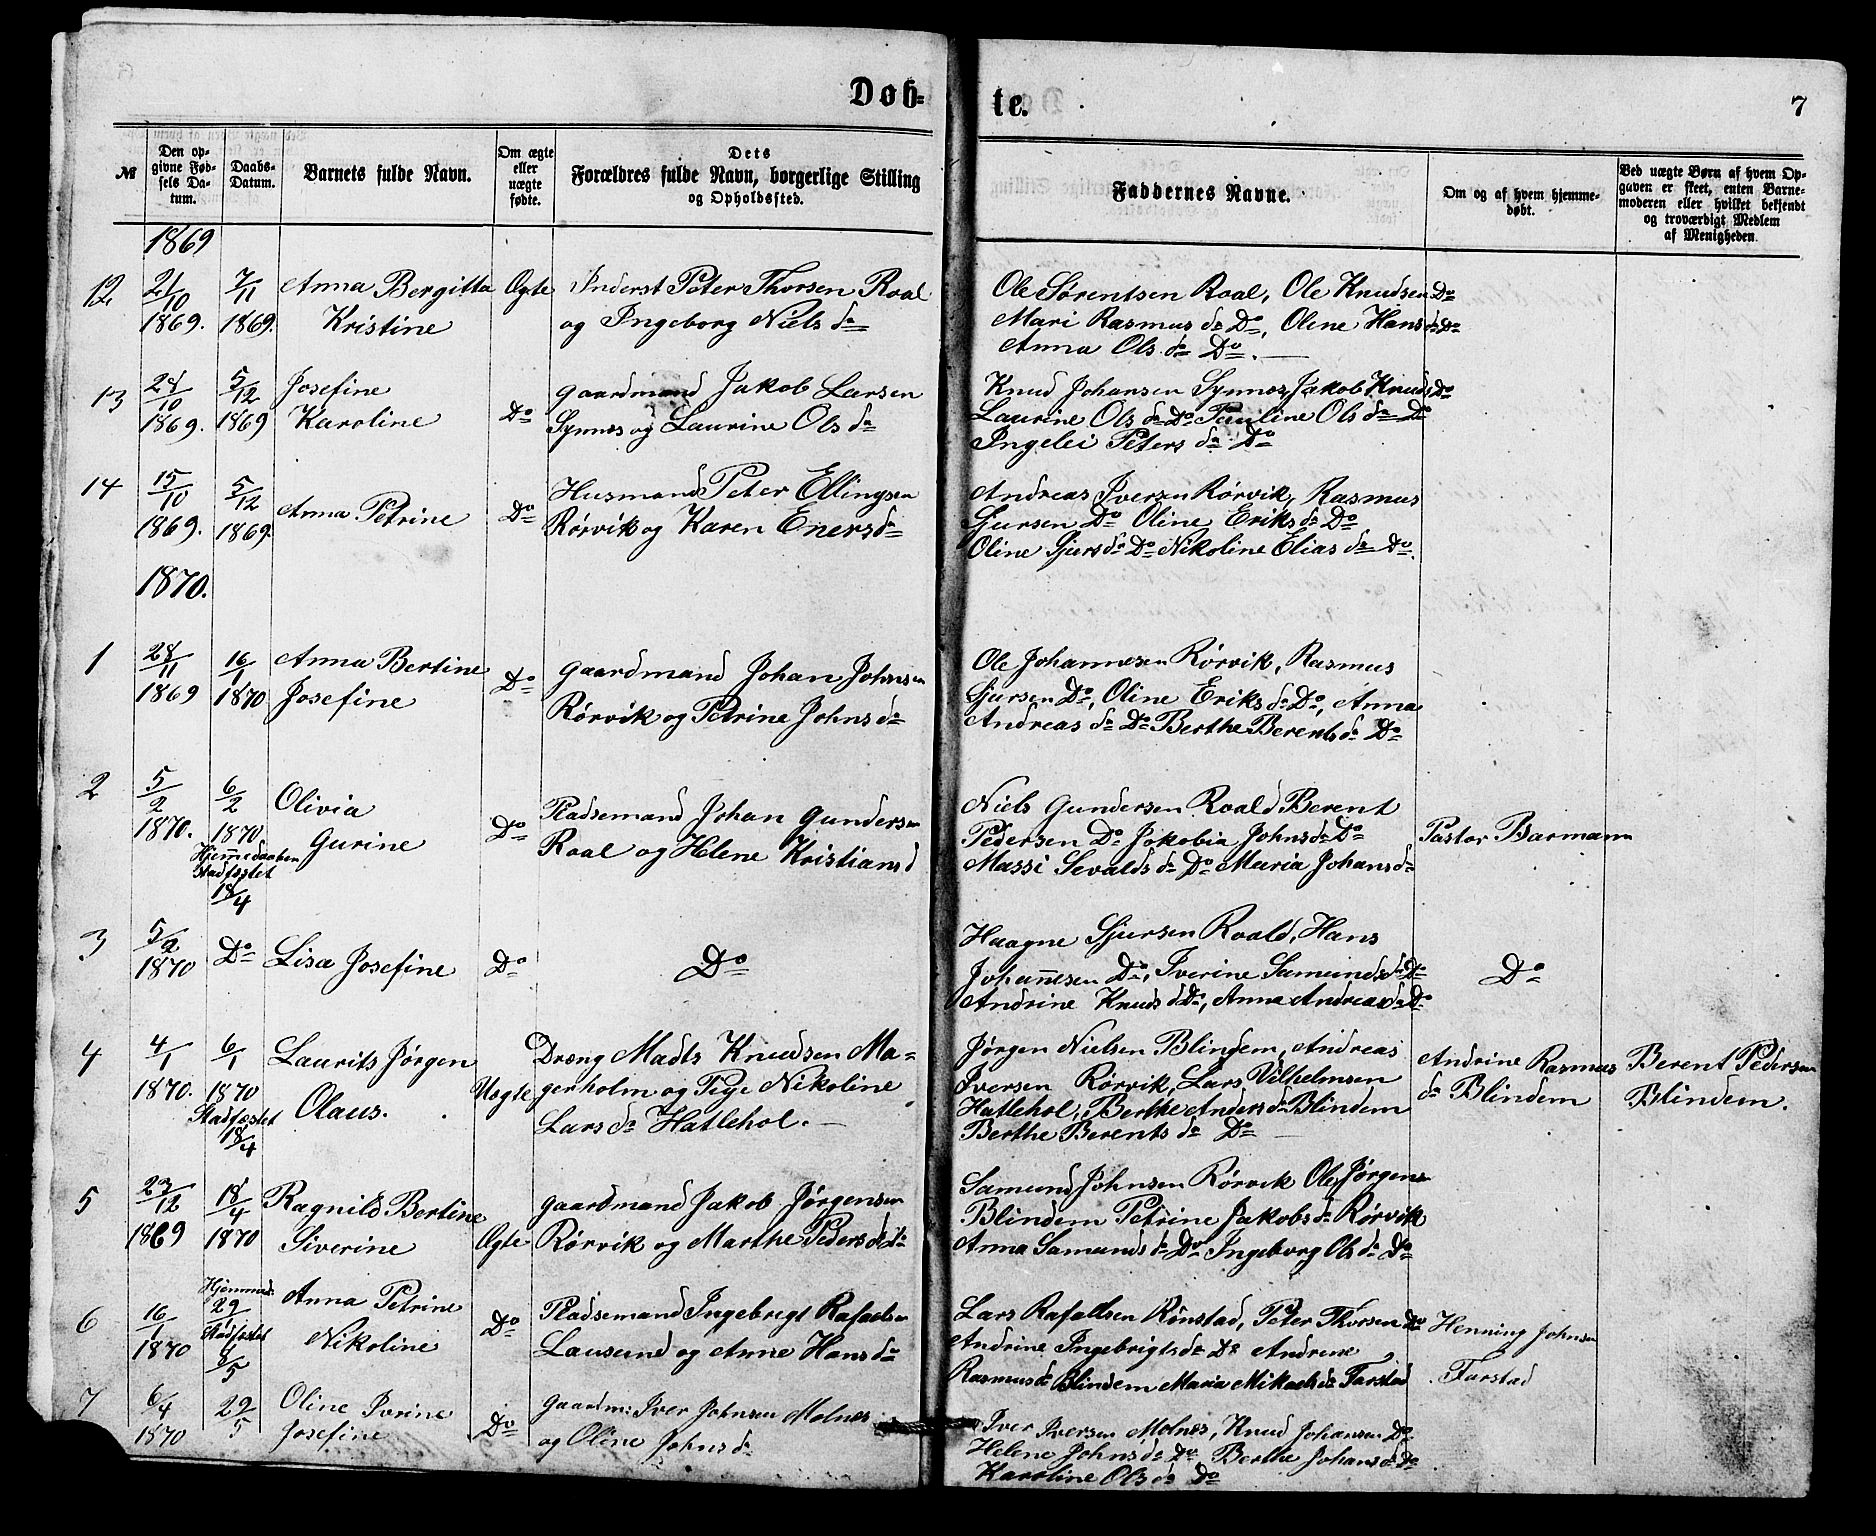 Døb-
te.
7
№
Den op-
givne Fød-
sels Da-
tum.
Daabs-
Datum.
Barnets fulde Navn.
Om ægte
eller
uægte
fødte.
Dets
Forældres fulde Navn, borgerlige Stilling
og Opholdssted.
Faddernes Navne.
Om og af hvem hjemme-
døbt.
Ved uægte Børn af hvem Op-
gaven er skeet, enten Barne-
moderen eller hvilket bekjendt
og troværdigt Medlem
af Menigheden.
1869
12
21/10
1869.
7/11
1869.
Anna Bergitta
Kristine
Ægte
Inderst Peter Thorsen Roal
og Ingeborg Niels da
Ole Sørentsen Roal, Ole Knudsen Do
Mari Rasmus da Do, Olene Hans da Do
Anna Ols da Do.
13
24/10
1869.
5/12
1869
Josefine
Karoline
Do
Gaardmand Jakob Larsen
Synnes og Laurine Ols da
Knud Johansen Synnes, Jakob Knuds Do
Laurine Ols da Do Pauline Ols da Do
Ingelei Peters da Do
14
15/10
1869.
5/12
1869.
Anna Petrine
Do
Husmand Peter Ellingsen
Rørvik og Karen Eners da
Andreas Iversen Rørvik, Rasmus
Sjursen Do Oline Eriks da Do
Oline Sjurs da Do Nikoline Elias da Do.
1870.
1
28/11
1869
16/1
1870
Anna Bertine
Josefine
Do
Gaardmand Johan Johnsen
Rørvik og Petrine Johns da
Ole Johannesen Rørvik, Rasmus
Sjursen Do, Oline Eriks da Do, Anna
Andreas da Do Berthe Berents da Do
2
5/2
1870.
6/2
1870
Hjemmedaaben
Stadfæstet
18/4
Olivia
Gurine
Do
Pladsemand Johan Gundersen
Roal og Helene Kristians d
Niels Gundersen Roald Berent
Pedersen Do Jakobia Johns da Do
Massi Sevalds da Do Maria Johans da
Pastor Barmann
3
5/2
1870
Do
Lisa Josefine
Do
Do
Haagne Sjursen Roald, Hans
Johannesen Do, Iverine Samunds da Do
Andrine Knuds d Do, Anna Andreas da Do
Do
4
4/1
1870.
6/1
1870
Stadfæstet
18/4
Laurits Jørgen
Olaus.
Uægte
Dræng Madts Knudsen Ma-
gerholm og Pige Nikoline
Lars da Hatlehol.
Jørgen Nielsen Blindem, Andreas
Iversen Rørvik, Lars Vilhelmsen
Hatlehol, Berthe Anders da Blindem
Berthe Berents da Do
Andrine Rasmus
da Blindem
Berent Pedersen
Blindem.
5
23/12
1869
18/4
1870
Ragnild Bertine
Siverine
Ægte
Gaardmand Jakob Jørgensen
Rørvik og Marthe Peders da
Samund Johnsen Rørvik Ole Jørgens
Blindem Petrine Jakobs da Rørvik
Anna Samunds da Do Ingeborg Ols da Do
6
16/1
1870
Hjemmed.
29/1
Stadfæstet
8/5
Anna Petrine
Nikoline
Do
Pladsemand Ingebrigt Rafaelsen
Lausund og Anne Hans da
Lars Rafaelsen Rønstad, Peter Thorsen Do
Andrine Ingebrigts da Do Andrine
Rasmus da Blindem Maria Mikaels da Farstad
Henning Johnsen
Farstad
7
6/4
1870
29/5
Oline Ivrine
Josefine
Do
Gaardm: Iver Johnsen Molnes
og Oline Johns da
Iver Iversen Molnes, Knud Johansen Do.
Helene Johns da Do Berthe Johans da Do
Karoline Ols da Do